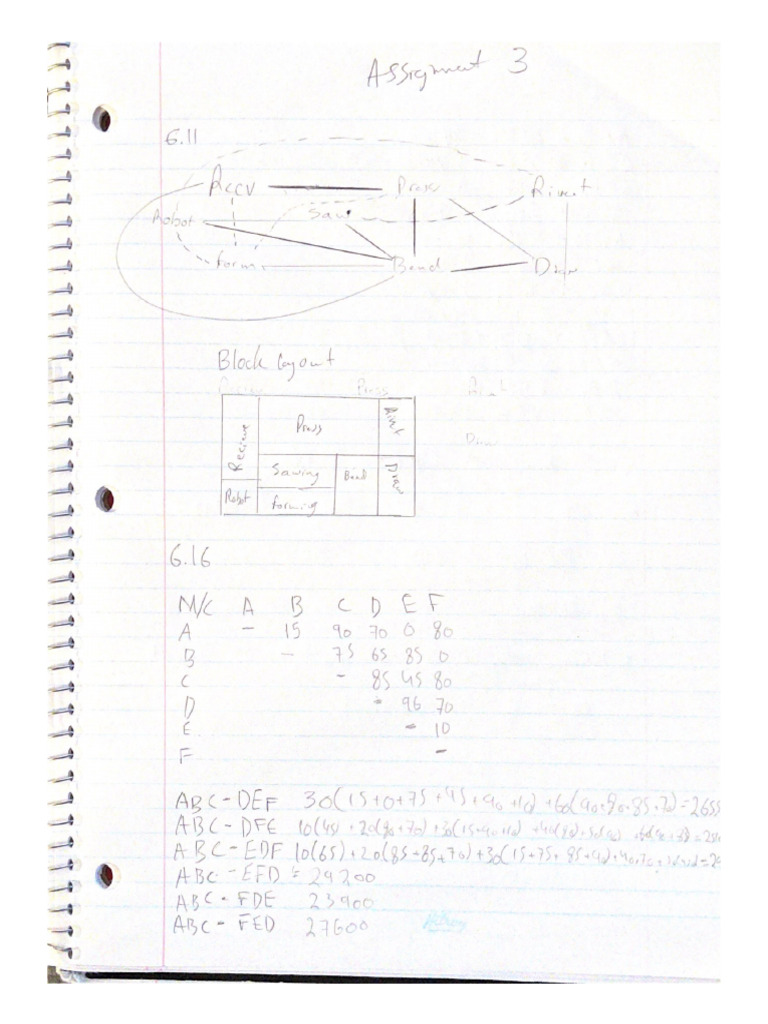 Assignment 3
6.11
Recv Press Rivet
Robot Saw
form Bend Draw
Block layout
Press Rivet
Draw
Recieve Press Rivet
Sawing Bend Draw
Robot forming
6.16
M/C A B C D E F
A - 15 90 70 0 80
B - 75 65 85 0
C - 85 45 80
D - 96 70
E - 10
F -
ABC-DEF 30(15+0+75+45+90+10) +60(90+80+85+70)=2655
ABC-DFE 10(45) +20(80+70)+30(15+90+10)
ABC-EDF 10(65)+20(85+85+70)+30(15+75+85+90)
ABC-EFD = 29200
ABC-FDE 23900
ABC-FED 27600